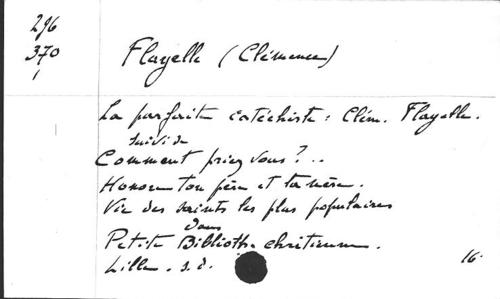 296
370
1
Flayelle (Clémence)
La parfaite catéchiste : Clém. Flayelle.
suivi de
Comment priez vous ? ..
Honore ton père et ta mère.
Vie des saints les plus populaires
dans
Petite Biblioth. chrétienne.
Lille. s.d.
16.